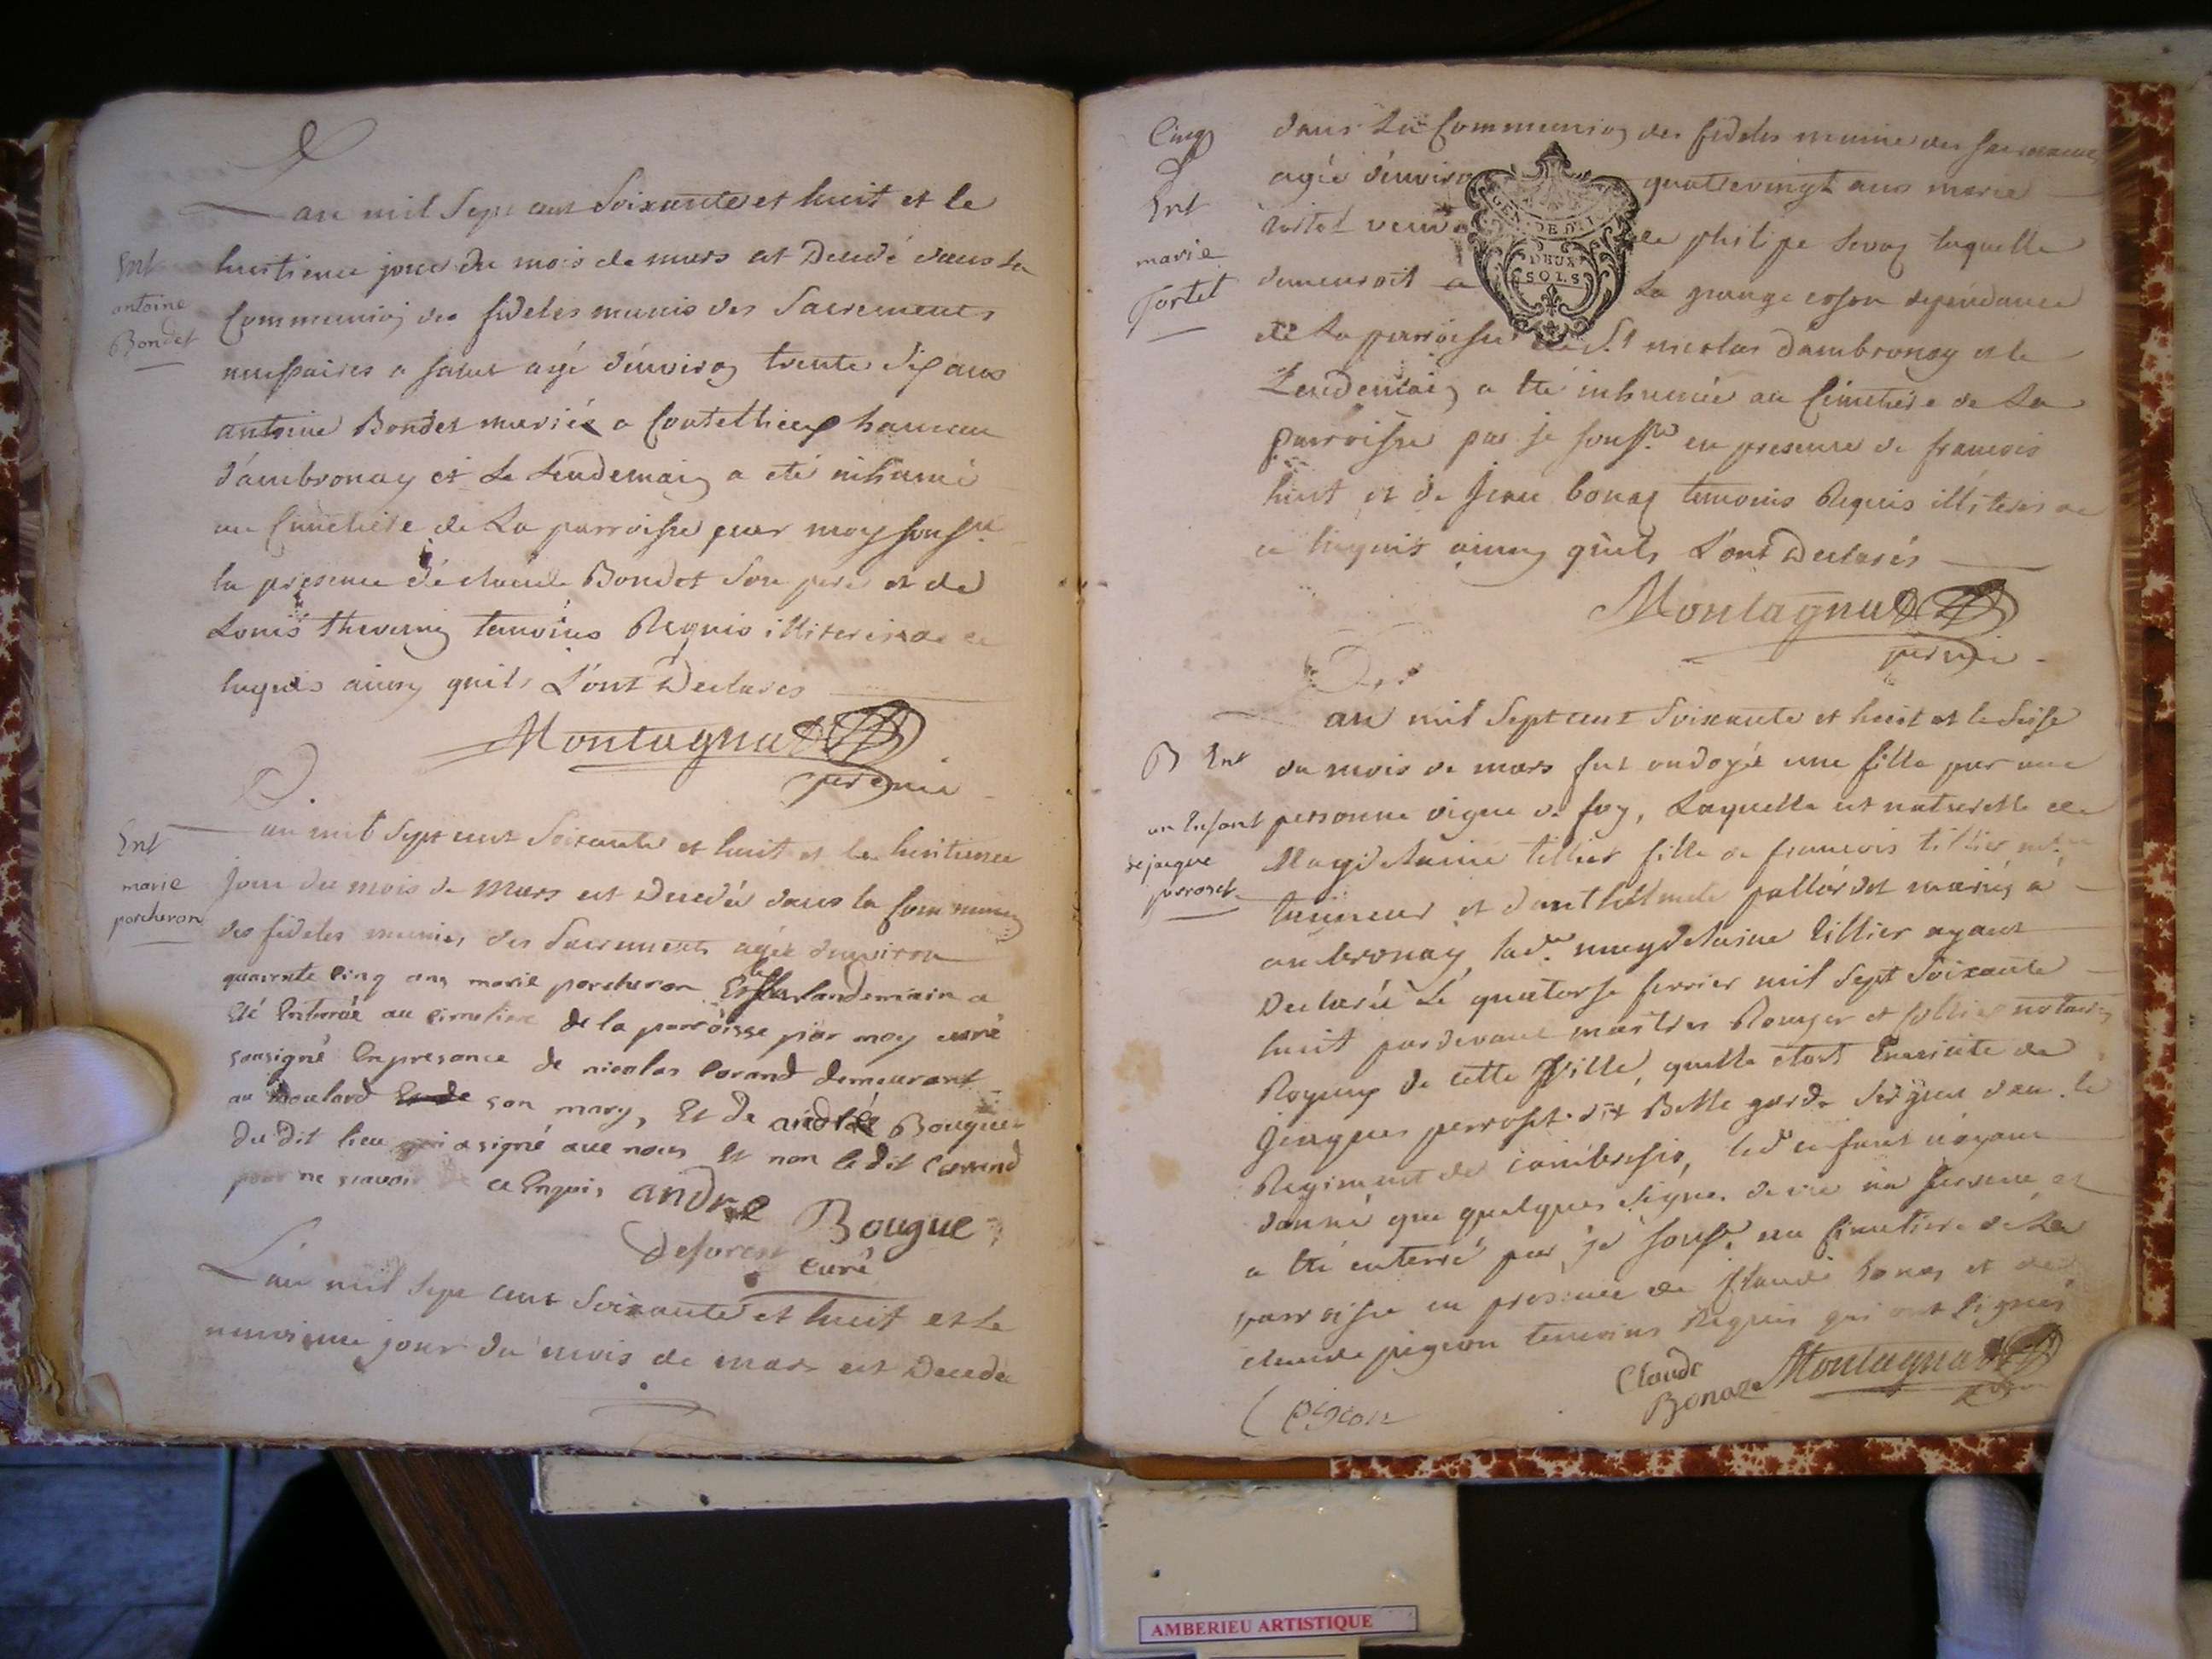 L
an mil sept cent soixante et huit et le
Ent
antoine
Bondet
huitieme jour du mois de mars est decedé dans la
Communion des fideles munis des Sacrements
necessaires a salut agé d'environ trente six ans
antoine Bondet mariés a hameau
d'ambronay et le lendemain a eté inhumé
au Cimetiere de la parroisse par moy souss.né
en presence de claude Bondet son pere et de
Louis thevenin temoins Requis illiteres de ce
enquis ainsy quils l'ont declarés
Montagnat
L
Ent
marie
porcheron
an mil sept cent soixante et huit et le huitieme
jour du mois de Mars est decedée dans la Communion
des fideles munies des Sacrements agée d'environ
quarente cinq ans marie porcheron Et le landemain a
Eté Enterrée au cimetiere de la parroisse par moy curé
sousigné Enpresance de nicolas Corand demeurant
au Moulard Et de son mary, Et de andré Bouguet
du dit lieu qui a signé avec nous Et non le dit Corand
pour ne scavoir de ce Enquis andre Bougue
deforest curé
L'an mil sept cent soixante et huit et le
neuvieme jour du mois de mars est decedée
Cinq
Ent
marie
Tortet
dans la Communion des fideles munie des sacrements
agée d'environ quatrevingt ans marie
tortet veuve de philipe laquelle
demeuroit a La grange dependance
de la parroisse de St nicolas d'ambronay et le
Lendemain a eté inhumée au Cimetiere de La
parroisse par je souss.né en presence de francois
huit et de Jean bonaz temoins Requis illiteres de
ce enquis ainsy qu'ils L'ont Declarés
GEN. DE DI
DEUX
SOLS
Montagnat
L
an mil Sept cent soixante et huit et le seise
B Ent
un Enfant
de jacque
perroset
du mois de mars fut ondoyé une fille par une
personne digne de foy, Laquelle est naturelle de
Magdelaine tillier fille de francois tillier
et mariés a
ambronay, lad. magdelaine tillier ayant
Declarée le quatorse fevrier mil sept soixante
huit pardevant maitres Rouyer et notaires
Royaux de cette Ville, quelle etoit Enceinte de
Jacques perroset dit Belle garde dans le
Regiment de cambresis, led. enfant n'ayant
donné que quelques signes de vie et
a eté enterré par je souss.né au Cimetiere de La
parroisse en presence de Claude bonaz et de
claude pigeon temoins Requis qui ont signés
Claude
Bonaz Montagnat
C pigeon
AMBERIEU ARTISTIQUE